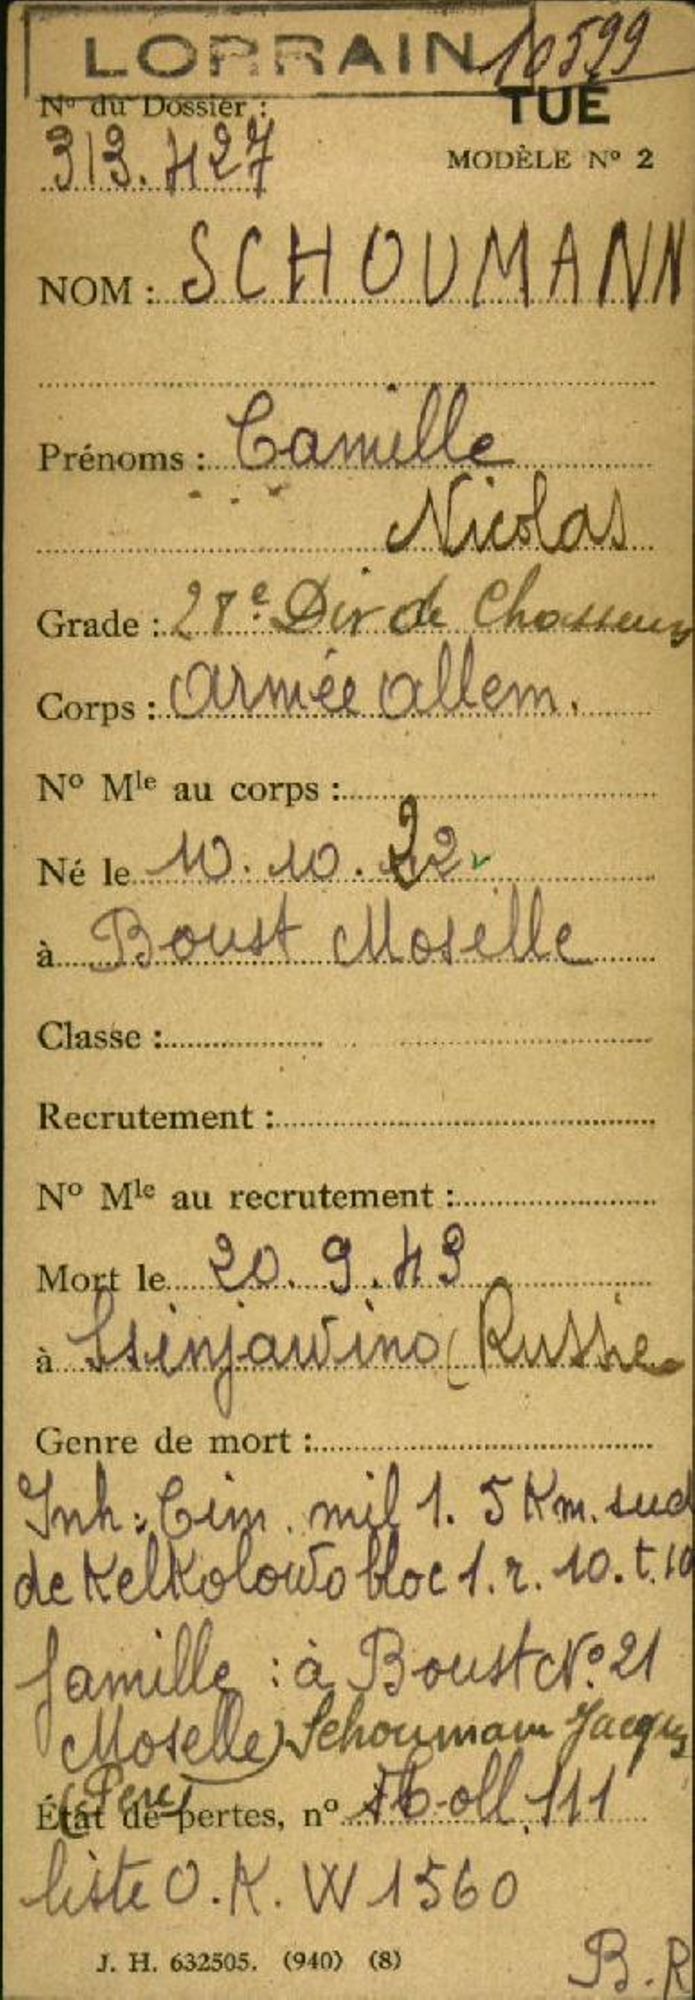 LORRAIN 10599
N° du Dossier :
TUÉ
313.427
MODÈLE N° 2
NOM : SCHOUMANN
Prénoms : Camille
Nicolas
Grade : 28e Div de Chasseurs
Corps : Armée allem.
N° Mle au corps :
Né le 10.10.22
à Boust Moselle
Classe :
Recrutement :
N° Mle au recrutement :
Mort le 20.9.43
à Ssinjawino (Russie
Genre de mort :
Inh: Cim. mil 1. 5 Km. sud
de Kelkolowo bloc 1. r. 10. t. 10
famille : à Boust N° 21
Moselle) Schoumann Jacques
(Père)
État de pertes, n° oll 111
liste O.K.W 1560
J. H. 632505. (940) (8)
B.R